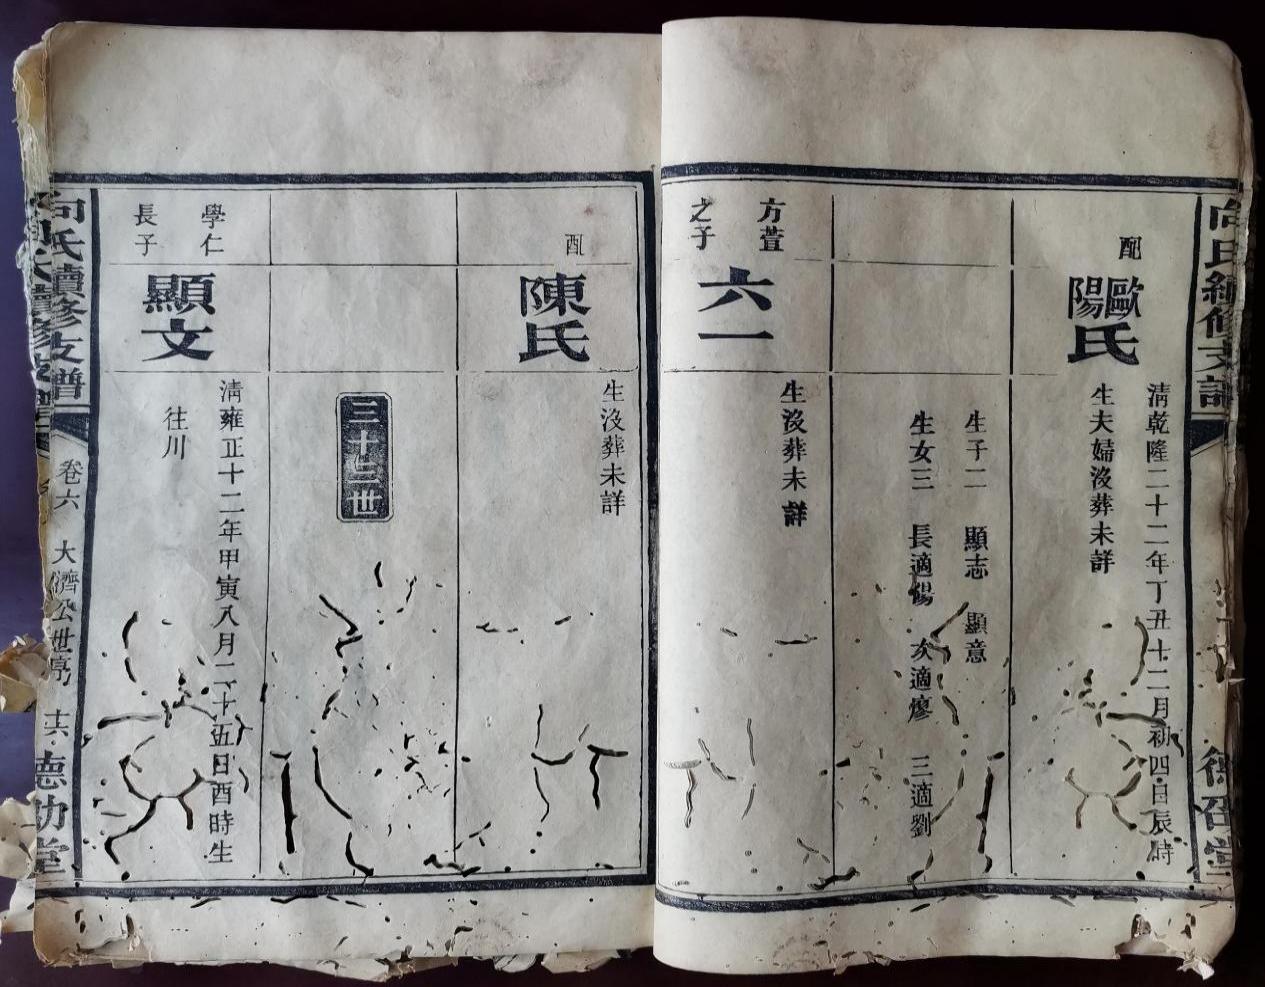 配
歐陽氏
清乾隆二十二年丁丑十二月初四日辰時
生夫婦沒葬未詳
生子二 顯志 顯意
生女三 長適楊 次適廖 三適劉
方萱
之子
六一
生沒葬未詳
配
陳氏
生沒葬未詳
三十三世
學仁
長子
顯文
清雍正十二年甲寅八月二十五日酉時生
往川
向氏續修支譜
卷六
大濟公世亨
十六